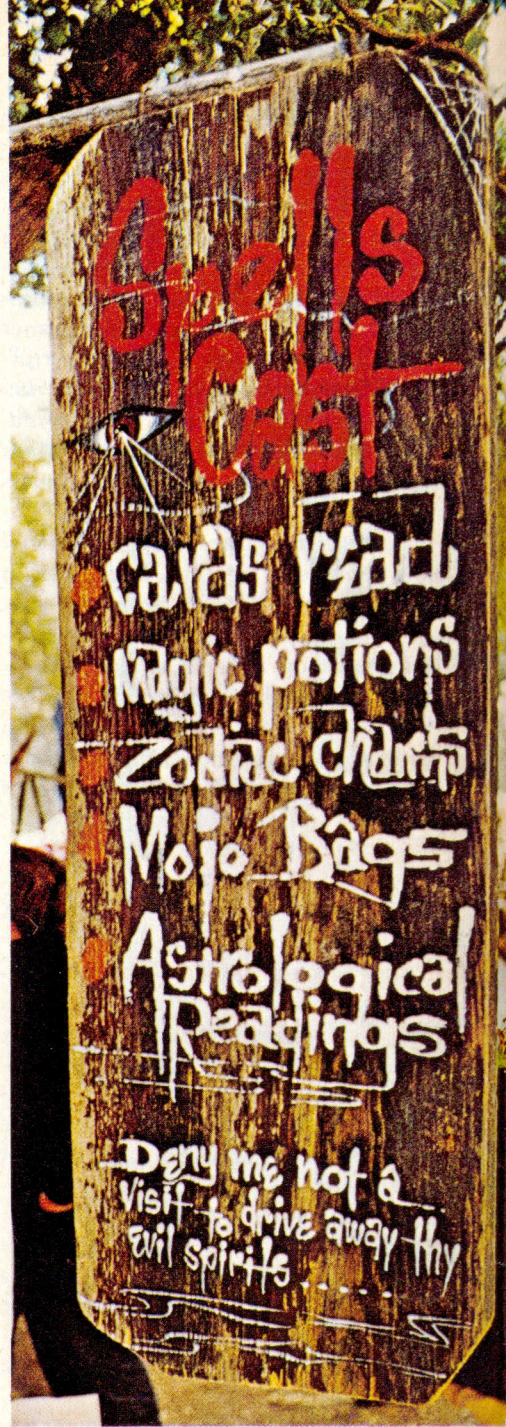 Spells
Cast
cards read
Magic potions
Zodiac charms
Mojo Bags
Astrological
Readings
Deny me not a
visit to drive away thy
evil spirits . . . . . .